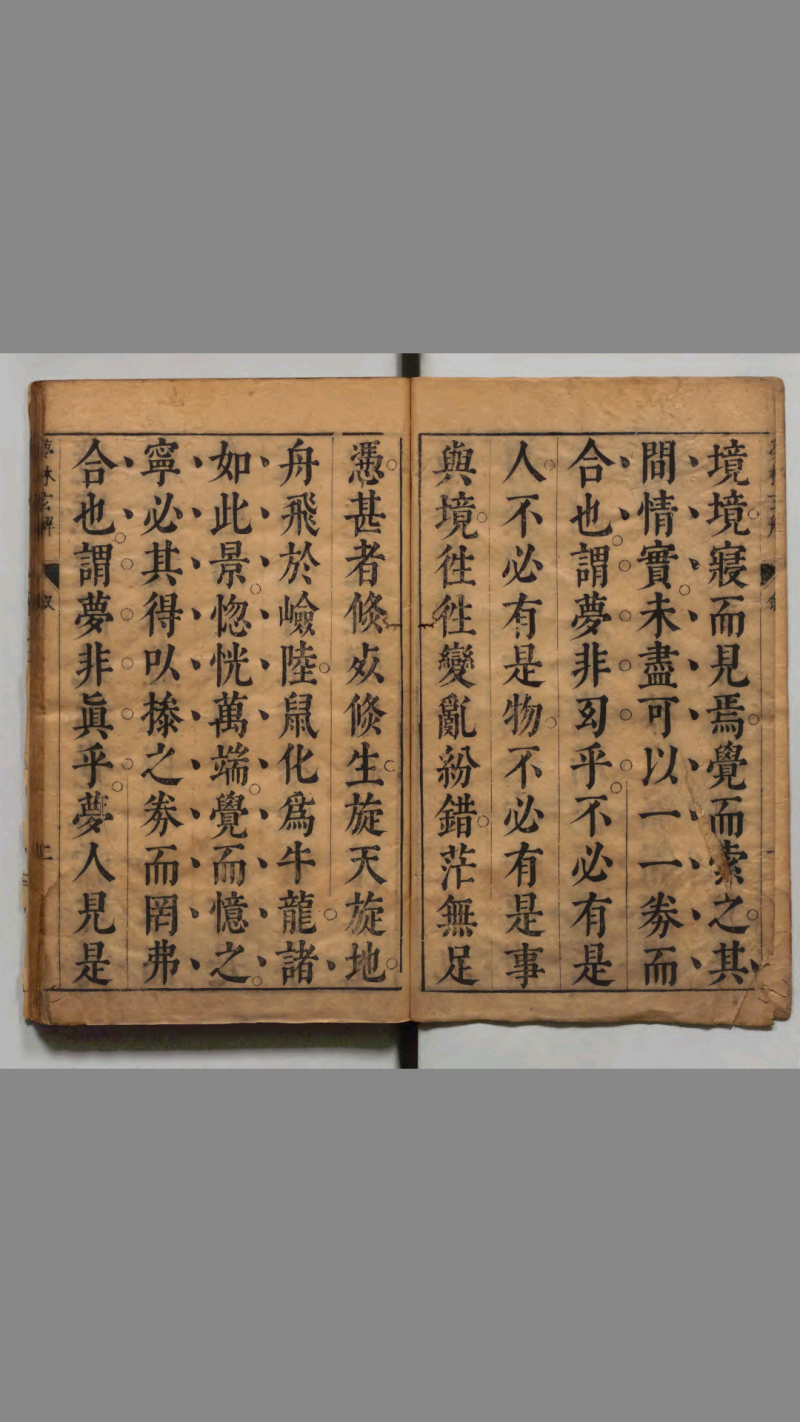 境境寢而見焉覺而索之其
間情實未盡可以一一劵而
合也謂夢非幻乎不必有是
人不必有是物不必有是事
與境徃徃變亂紛錯茫無足
憑甚者倐𡯁倐生旋天旋地
舟飛於嶮陸鼠化爲牛龍諸
如此景惚恍萬端覺而憶之
寧必其得以搽之劵而罔弗
合也謂夢非眞乎夢人見是
夢林玄解
敘
二